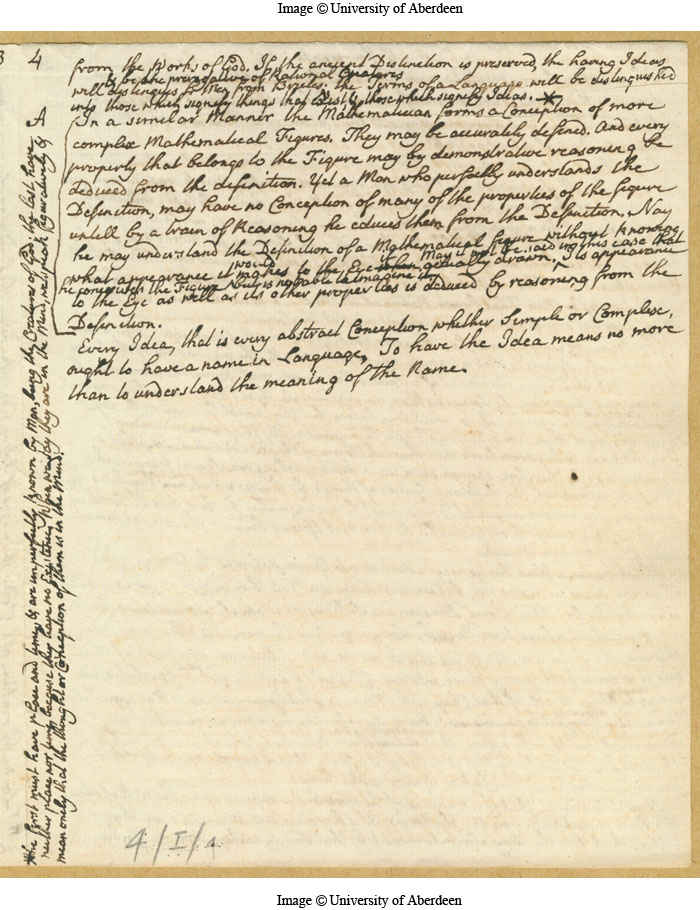 Image © University of Aberdeen
3
4
from the Works of God. If the ancient Distinction is preserved, the having Ideas
& be the prerogative of Rational Creatures
will distinguish Men from Brutes. the Terms of a Language will be distinguished
into those which signify things that Exist & those which signify Ideas. *
A
In a similar Manner the Mathematician forms a Conception of more
complex Mathematical Figures. They may be accurately defined. And every
property that belongs to the Figure may by demonstrative reasoning be
deduced from the definition. Yet a Man who perfectly understands the
Definition, may have no Conception of many of the properties of the figure
untill by a train of Reasoning he educes them from the Definition. Nay
he may understand the Definition of a Mathematical figure without knowing
what appearance it would make to the Eye when actually drawn. May it not be said in this case that
he conceives the Figure but is not able to imagine it
Its appearance
to the Eye as well as its other properties is deduced by reasoning from the
Definition.
Every Idea, that is every abstract Conception whether Simple or Complex,
ought to have a name in Language, To have the Idea means no more
than to understand the meaning of the Name.
* The first must have place and time, & are imperfectly known by Man, being the Creatures of God, the last, have
neither place nor time because they have no Existence. When we say they are in the Mind, we speak figuratively &
mean only that the thought or Conception of them is in the Mind.
4/I/a
Image © University of Aberdeen